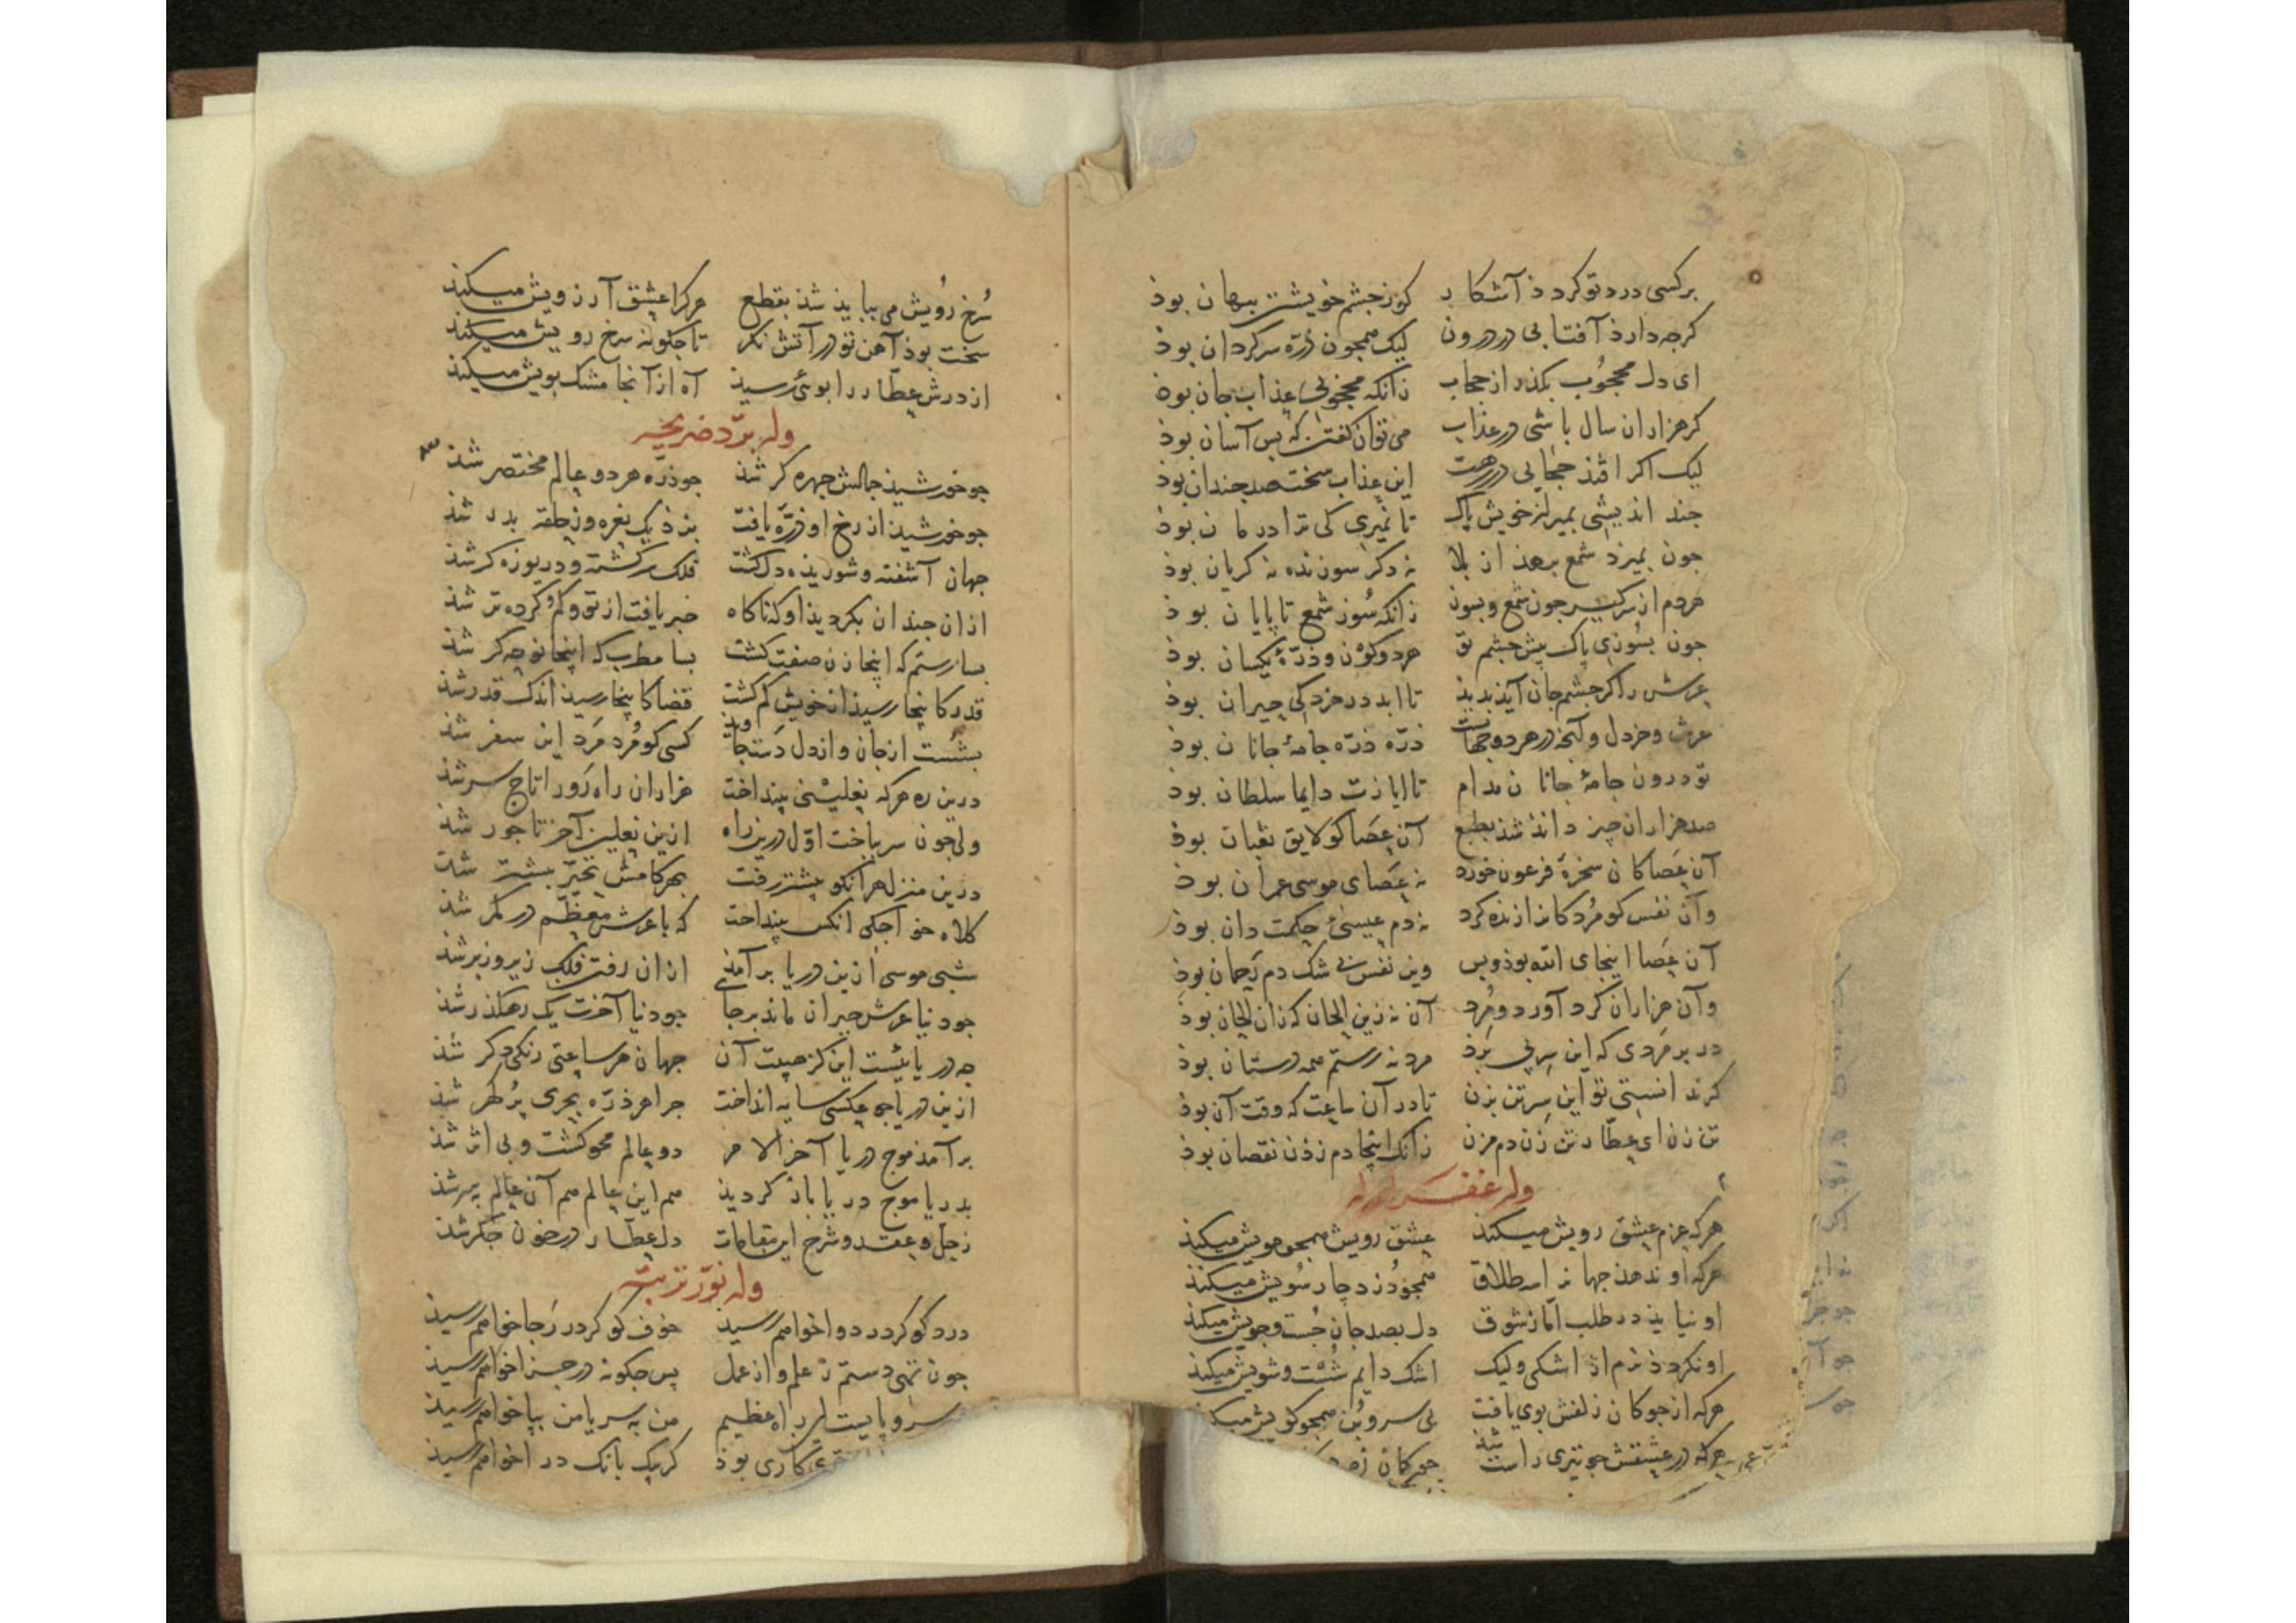 بر کسی درد تو کردد آشکار کو ز جشم خویشتن بنهان بوذ
کرجه دارذ آفتابی در درون لیک همجون ذرّه سرکردان بوذ
ای دل محجُوب بکذر از حجاب زانکه محجوبی عذاب جان بوذ
کر هزاران سال باشی در عذاب می توان کفتن که بس آسان بوذ
لیک اکر افتذ حجابی در رهت این عذاب سخت صد جندان بوذ
جند اندیشی بمیر از خویش پاک تا نمیری کی ترا درمان بوذ
جون بمیرد شمع برهذ از بلا نه دکر سوزنده نه کریان بوذ
هردم از سر کیر جون شمع و بسوز زانکه سُوز شمع تا پایان بوذ
جون بسُوزی پاک پیش جشم تو هر دو کوْن و ذرّهٔ یکسان بوذ
عرش را کر جشم جان آیذ بدیذ تا ابد در خردلی حیران بوذ
عرش و خردل و آنجه در هر دو جهانست ذرّه ذرّه جامهٔ جانان بوذ
تو درون جامهٔ جانان مدام تا ایازت دایما سلطان بوذ
صد هزاران جیز دانذ شذ بطبع آن عَصا کو لایق ثعبان بوذ
آن عَصا کان سخرهٔ فرعون خورد نه عَصای موسی عمران بوذ
وآن نفس کو مُردکانرا زنده کرد نه دم عیسیٔ حکمت دان بوذ
آن عَصا اینجای الله بوذ و بس وین نفس بی شک دم رَحمان بوذ
وآن هزاران کرد آورد و مُرد آن نه زین الحان که زان الحان بوذ
در بر مَردی که این سِر پی بَرذ مرد نه رستم همه دستان بوذ
کر ندانستی تو این سِر تن بزن تا در آن ساعت که وقت آن بوذ
تن زن ای عطّار تن زن دم مزن زانک اینجا دم زذن نقصان بوذ
وله غفر الله له
هرکه عزم عشق رویش میکند عشق رویش همجو مویش میکند
هرکه او ندهذ جهانرا سه طلاق همجو دزد جار سُویش میکند
او نیایذ در طلب امّا ز شوق دل بصد جان جُست وجویش میکند
او نکردذ نرم از اشکی ولیک اشک دایم شُست وشویش میکند
هرکه از جوکان زلفش بوی یافت بی سر و بُن همجو کویش میکند
هرکه در عشقش جو تیری راست شذ جو کمان
سُرخ رُویش می بباید شذ بقطع هرکرا عشق آرزویش میکند
سخت بوذ آهن تو در آتش نکر تا جکونه سرخ رویش میکند
از درش عطّار را بوئی رسیذ آه از آنجا مشک بویش میکند
وله برّد ضریحه
جو خورشیذ جمالش جهره کر شذ جو ذرّه هر دو عالم مختصر شذ
جو خورشیذ از رخ او ذرّه یافت بزذ یک نعره وز حلقه بدر شذ
جهان آشفته و شوریذه دل کشت فلک سرکشته و دریوزه کر شذ
ازان جندان بکردیذ او که ناکاه خبر یافت از تو و کم کرده تر شذ
بسا رستم که اینجا زن صفت کشت بسا مطرب که اینجا نوحه کر شذ
قدر کاینجا رسیذ از خویش کم کشت قضا کاینجا رسیذ اندک قدر شذ
بشُست از جان و از دل دَست جاویذ کسی کو مُرد مَرد این سفر شذ
درین ره هرکه نعلینی بینداخت هزاران راه رَو را تاج سر شذ
ولی جون سر بباخت اوّل درین راه ازین نعلین آخر تاجور شذ
درین منزل هر آنکو پیشتر رفت بهر کامش تحیّر بیشتر شذ
کلاه خواجکی انکس بینداخت که با عرش معظّم در کمر شذ
شبی موسی ازین دریا بر آمذ ازان رفت فلک زیر و زبر شذ
جو دنیا عرش حیران ماند بر جای جو دنیا آخرت یک رهکذر شذ
جه دریائیست این کز هیبت آن جهان هر ساعتی رنکی دکر شذ
ازین دریا جو عکسی سایه انداخت جرا هر ذرّه بحری پر کهر شذ
بر آمذ موج دریا آخر الامر دو عالم محو کشت و بی اثر شذ
بدریا موج دریا باز کردیذ هم این عالم هم آن عالم بسر شذ
ز حلّ و عقد و شرح این مقامات دل عطّار در خون جکر شذ
وله نوّر تربته
درد کو کر در دوا خواهم رسیذ خوف کو کر در رَجا خواهم رسیذ
جون تهی دستم ز علم و از عمل پس جکونه در جزا خواهم رسیذ
سر و پا نیست این راه عظیم من به سر یا من بپا خواهم رسیذ
کاری بوذ کر بیک بانک درا خواهم رسیذ